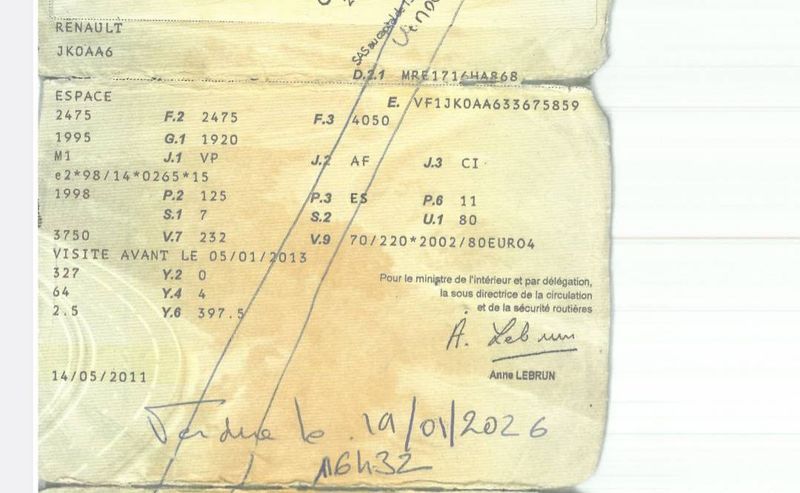 RENAULT
JK0AA6
SAS au capital de
D.2.1 MRE1716HA868
ESPACE
E. VF1JK0AA633675859
2475 F.2 2475 F.3 4050
1995 G.1 1920
M1 J.1 VP J.2 AF J.3 CI
e2*98/14*0265*15
1998 P.2 125 P.3 ES P.6 11
S.1 7 S.2 U.1 80
3750 V.7 232 V.9 70/220*2002/80EURO4
VISITE AVANT LE 05/01/2013
327 Y.2 0
64 Y.4 4
2.5 Y.6 397.5
Pour le ministre de l'intérieur et par délégation,
la sous directrice de la circulation
et de la sécurité routières
A. Lebrun
14/05/2011
Anne LEBRUN
Vendue le 19/01/2026
16h32